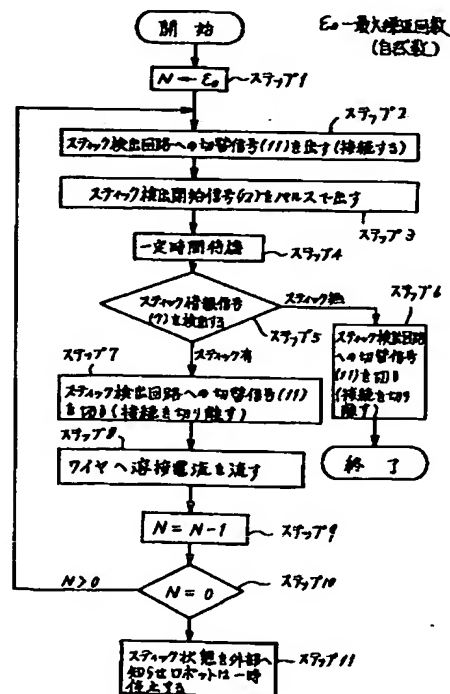 開始
ε₀ー最大検証回数
(自然数)
N ← ε₀
ステップ1
ステップ2
スティック検出回路への切替信号(11)を出す(接続する)
スティック検出開始信号(12)をパルスで出す
ステップ3
一定時間待機
ステップ4
スティック情報信号
(7)を検出する
スティック無
ステップ5
ステップ6
スティック検出回路
への切替信号
(11)を切る
(接続を切り
離す)
スティック有
ステップ7
スティック検出回路への切替信号(11)
を切る(接続を切り離す)
終了
ステップ8
ワイヤへ溶接電流を流す
N = N-1
ステップ9
N>0
N = 0
ステップ10
スティック状態を外部へ
知らせロボットは一時
停止する
ステップ11